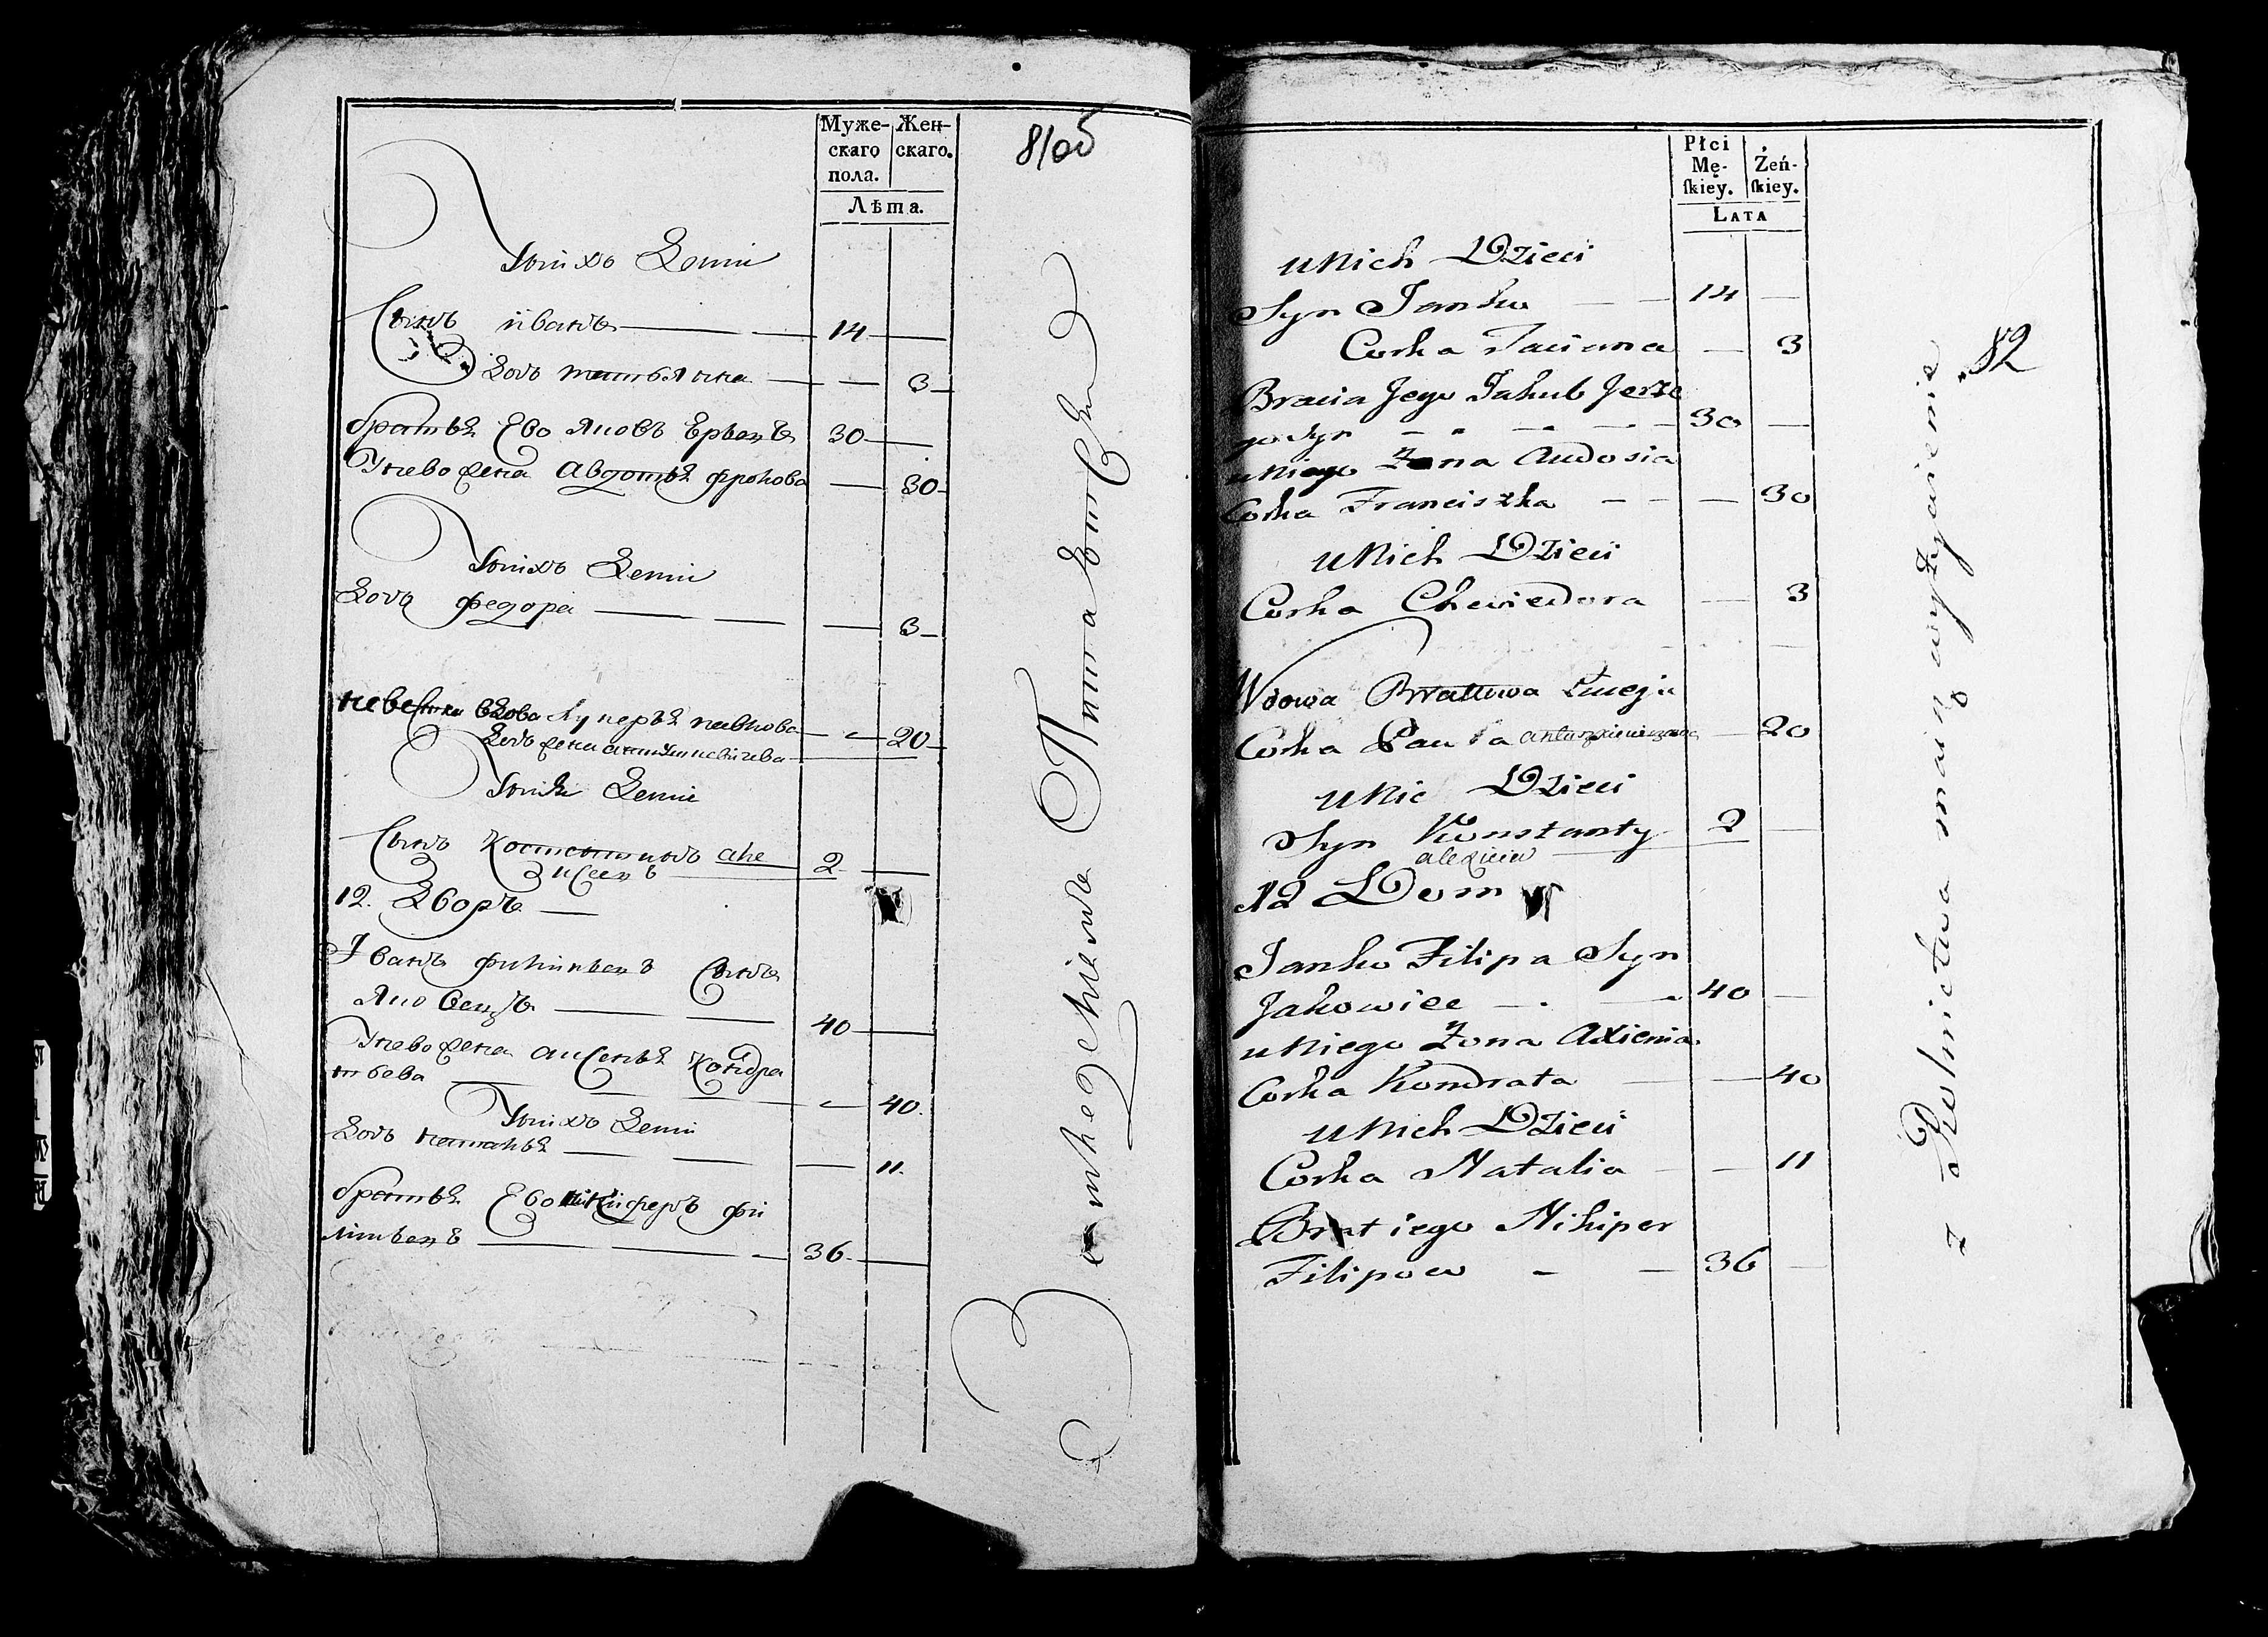 Муже- Жен-
скаго скаго.
пола.
Лѣта.
81об
Уних Дети
Сынъ иванъ 14
Дочь татьяна 3
братъ Ево яковъ Ерьевъ 30
Унево жена Авдотья фролова 30
Уних Дети
Дочь федора 3
невестка вдова лукерья павлова 20
Дочь жена
Уних Дети
Сынъ Костентинъ але
ксеевъ 2
12. Дворъ
Иванъ филипьевъ Сынъ
Яковецъ 40
Унево жена аксенья Кондра
тьева 40
Уних Дети
Дочь наталья 11.
братъ Ево никифоръ фи
липьевъ 36
Земледелиемъ Питаютса
Płci
Mę- Żeń-
ſkiey. ſkiey.
LATA
82
u Nich Dzieci
Syn Janko 14
Corka Taciana 3
Bracia Jego Jakub Jerze
go Syn 30
u Niego Żona Audosia
Corka Franciszka 30
u Nich Dzieci
Corka Chwiedora 3
Wdowa Bratowa Łuceja
Corka Pawła 20
u Nic Dzieci
Syn Konstanty 2
alexieiew
12 Dom
Janko Filipa Syn
Jakowiec 40
u Niego Żona Axienia
Corka Kondrata 40
u Nich Dzieci
Corka Natalia 11
Brat iego Nikiper
Filipow 36
z Rolnictwa maią wyżywienie